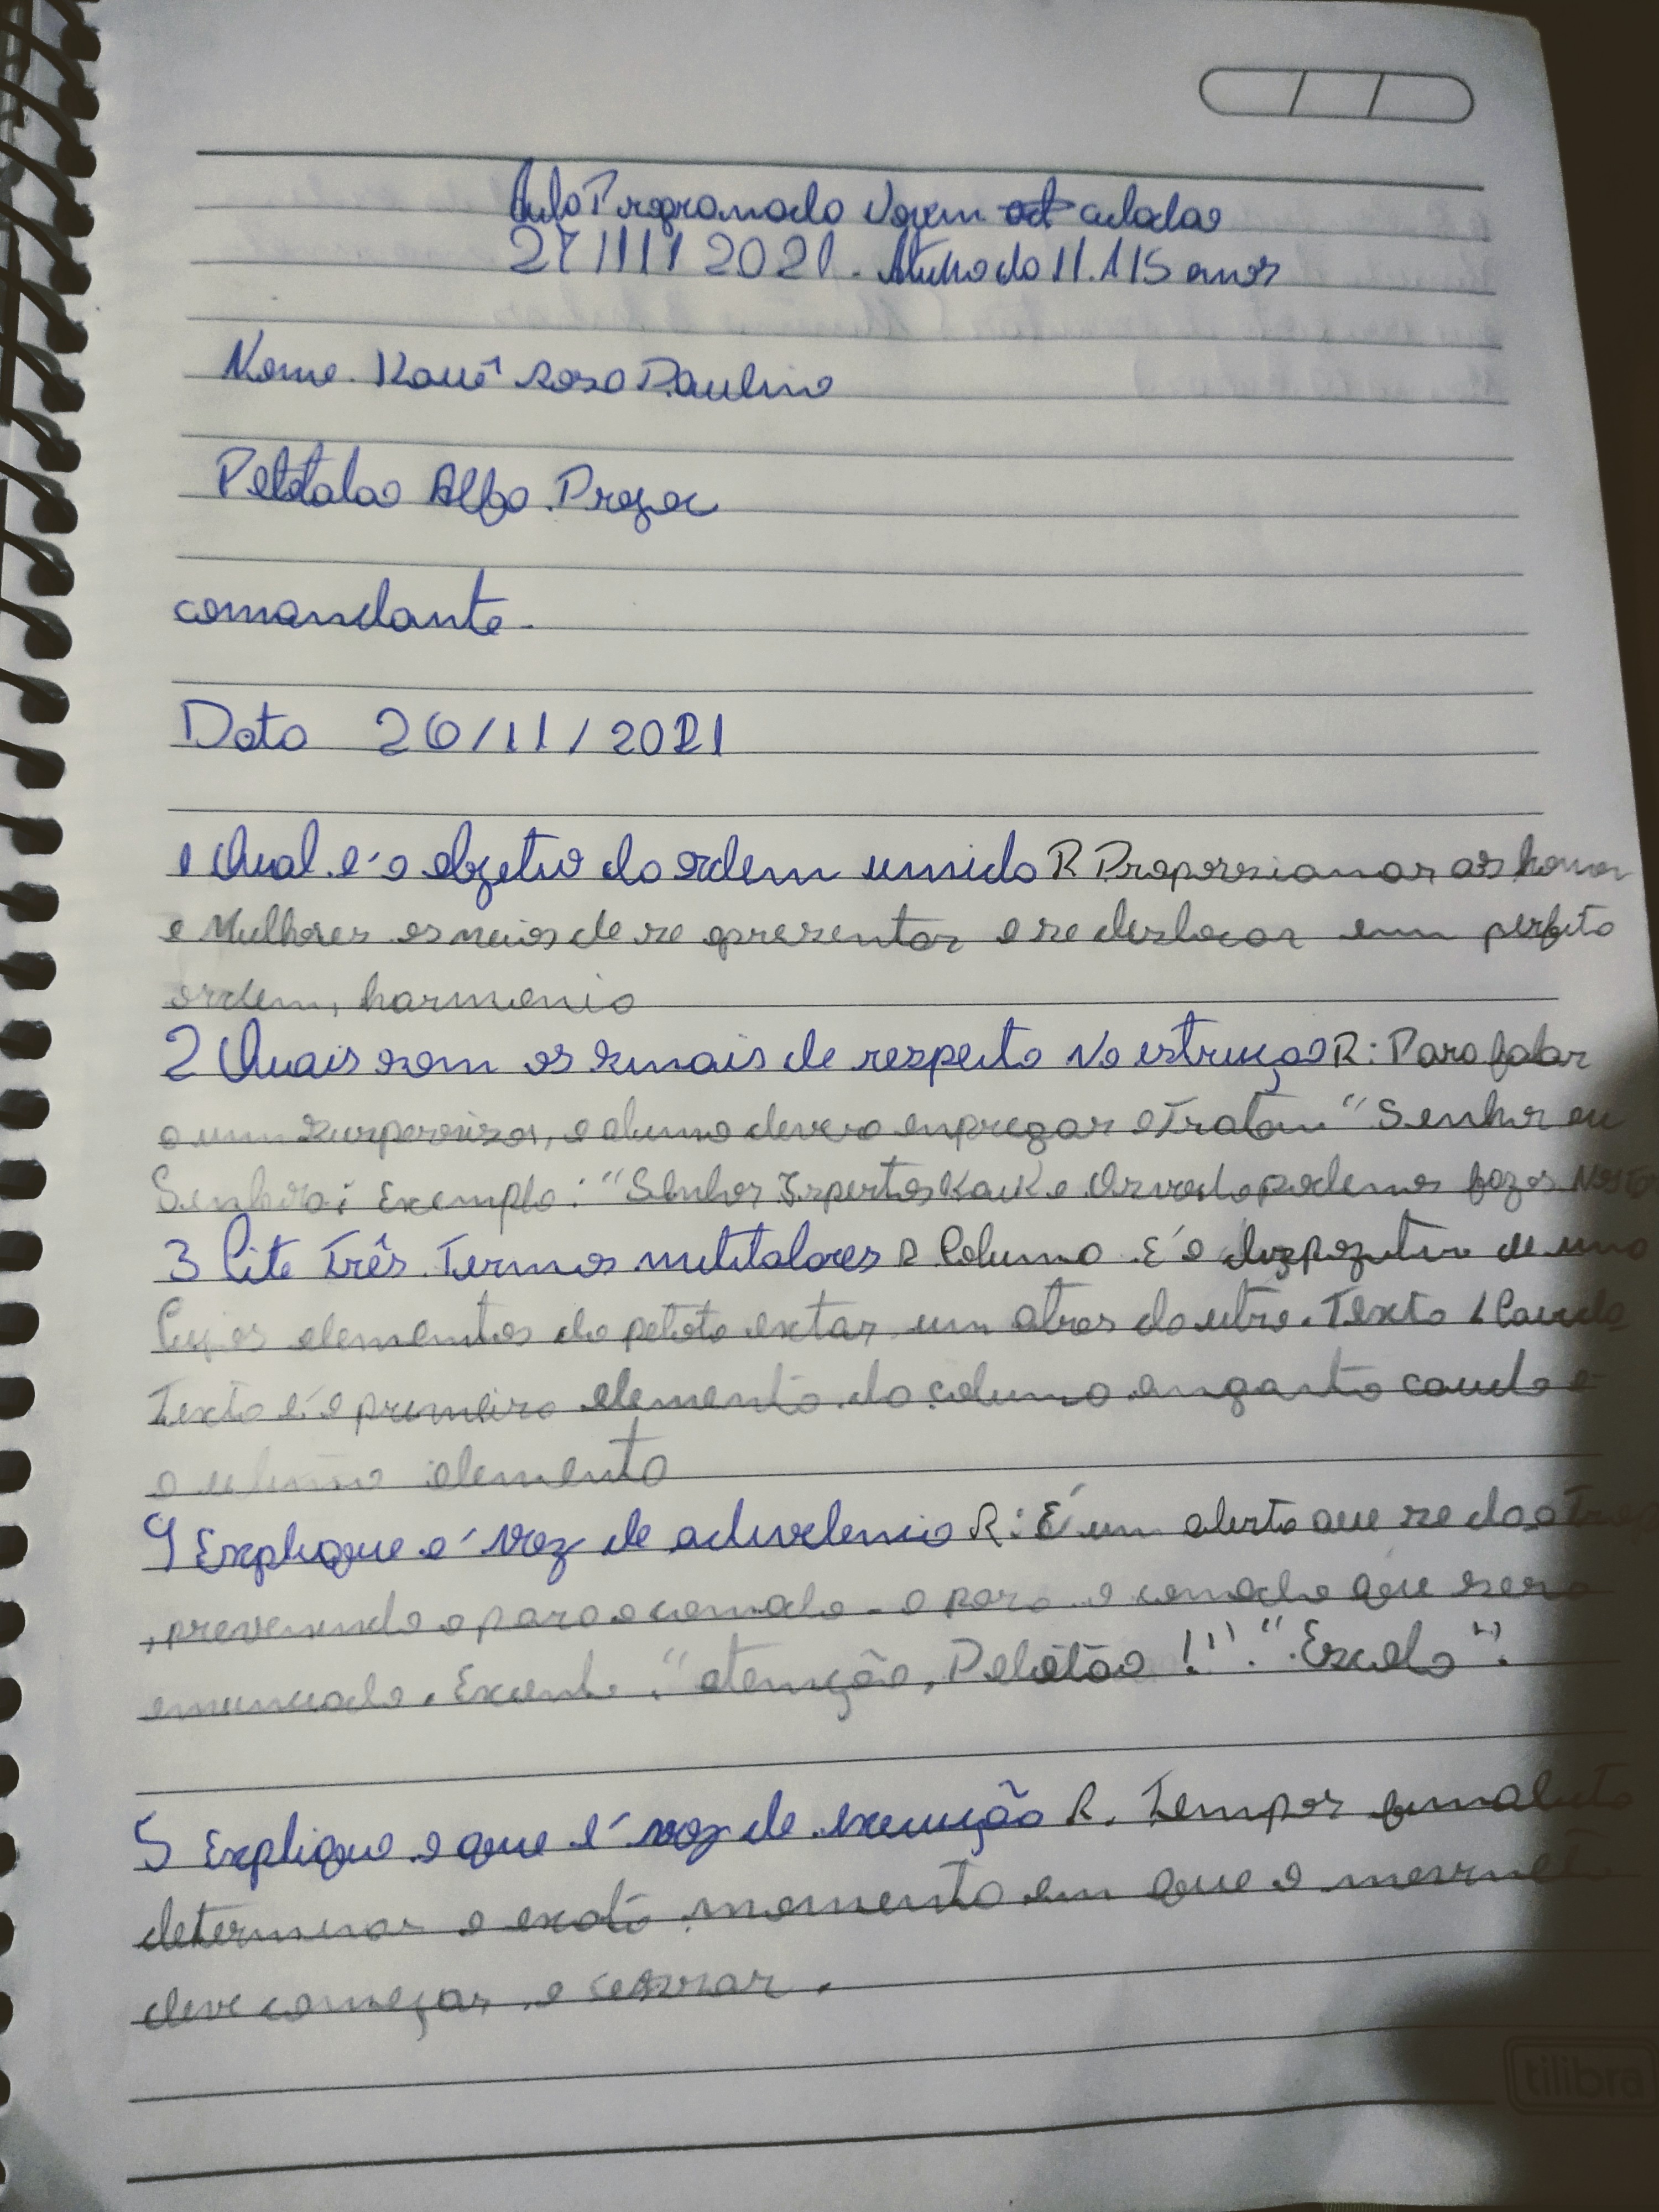 Aula Programada Jovem cidadao
27/11/2021. Atividade 11.115 anos
Nome. Kauê Rosa Paulino
Peltalao Alfa. Prozor
comandante.
Data 26/11/2021
1 Qual. é o objetivo da ordem unida R Proporsionar as homen
e Mulheres os meios de se apresentar e se deslocar em perfeita
ordem, harmonia
2 Quais som os sinais de respeito Na estruçao R: Para falar
a um o aluno devera enpregar o Tratam "Senhor ou
Senhora: Exemplo: "Senhor podemos fazer
3 Cite Três. Termos militalares R Coluna É o dizpozitivo de uma
Cujos elementos do peloto extar um atras do outro. Texto / Cauda
Texto é o primeiro elemento da coluna. enganto cauda e
o ultimo elemento
4 Explique o é voz de advdencia R: É um alerta que se da a
, prevenindo o para o comado - o para o comado que sera
enunciado. "atenção, Pelotão !" . "Escola".
5 Explique o que é voz de execução R. Tempor finalidade
determinar o exato momento em que o
deve começar e cessar.
tilibra